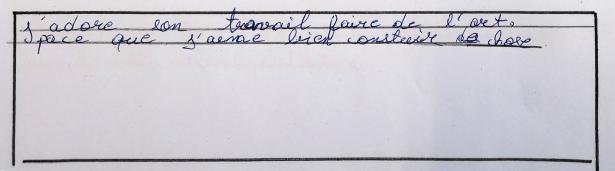 j'adore son travail faire de l'art.
space que j'aeme bien constuir se chose